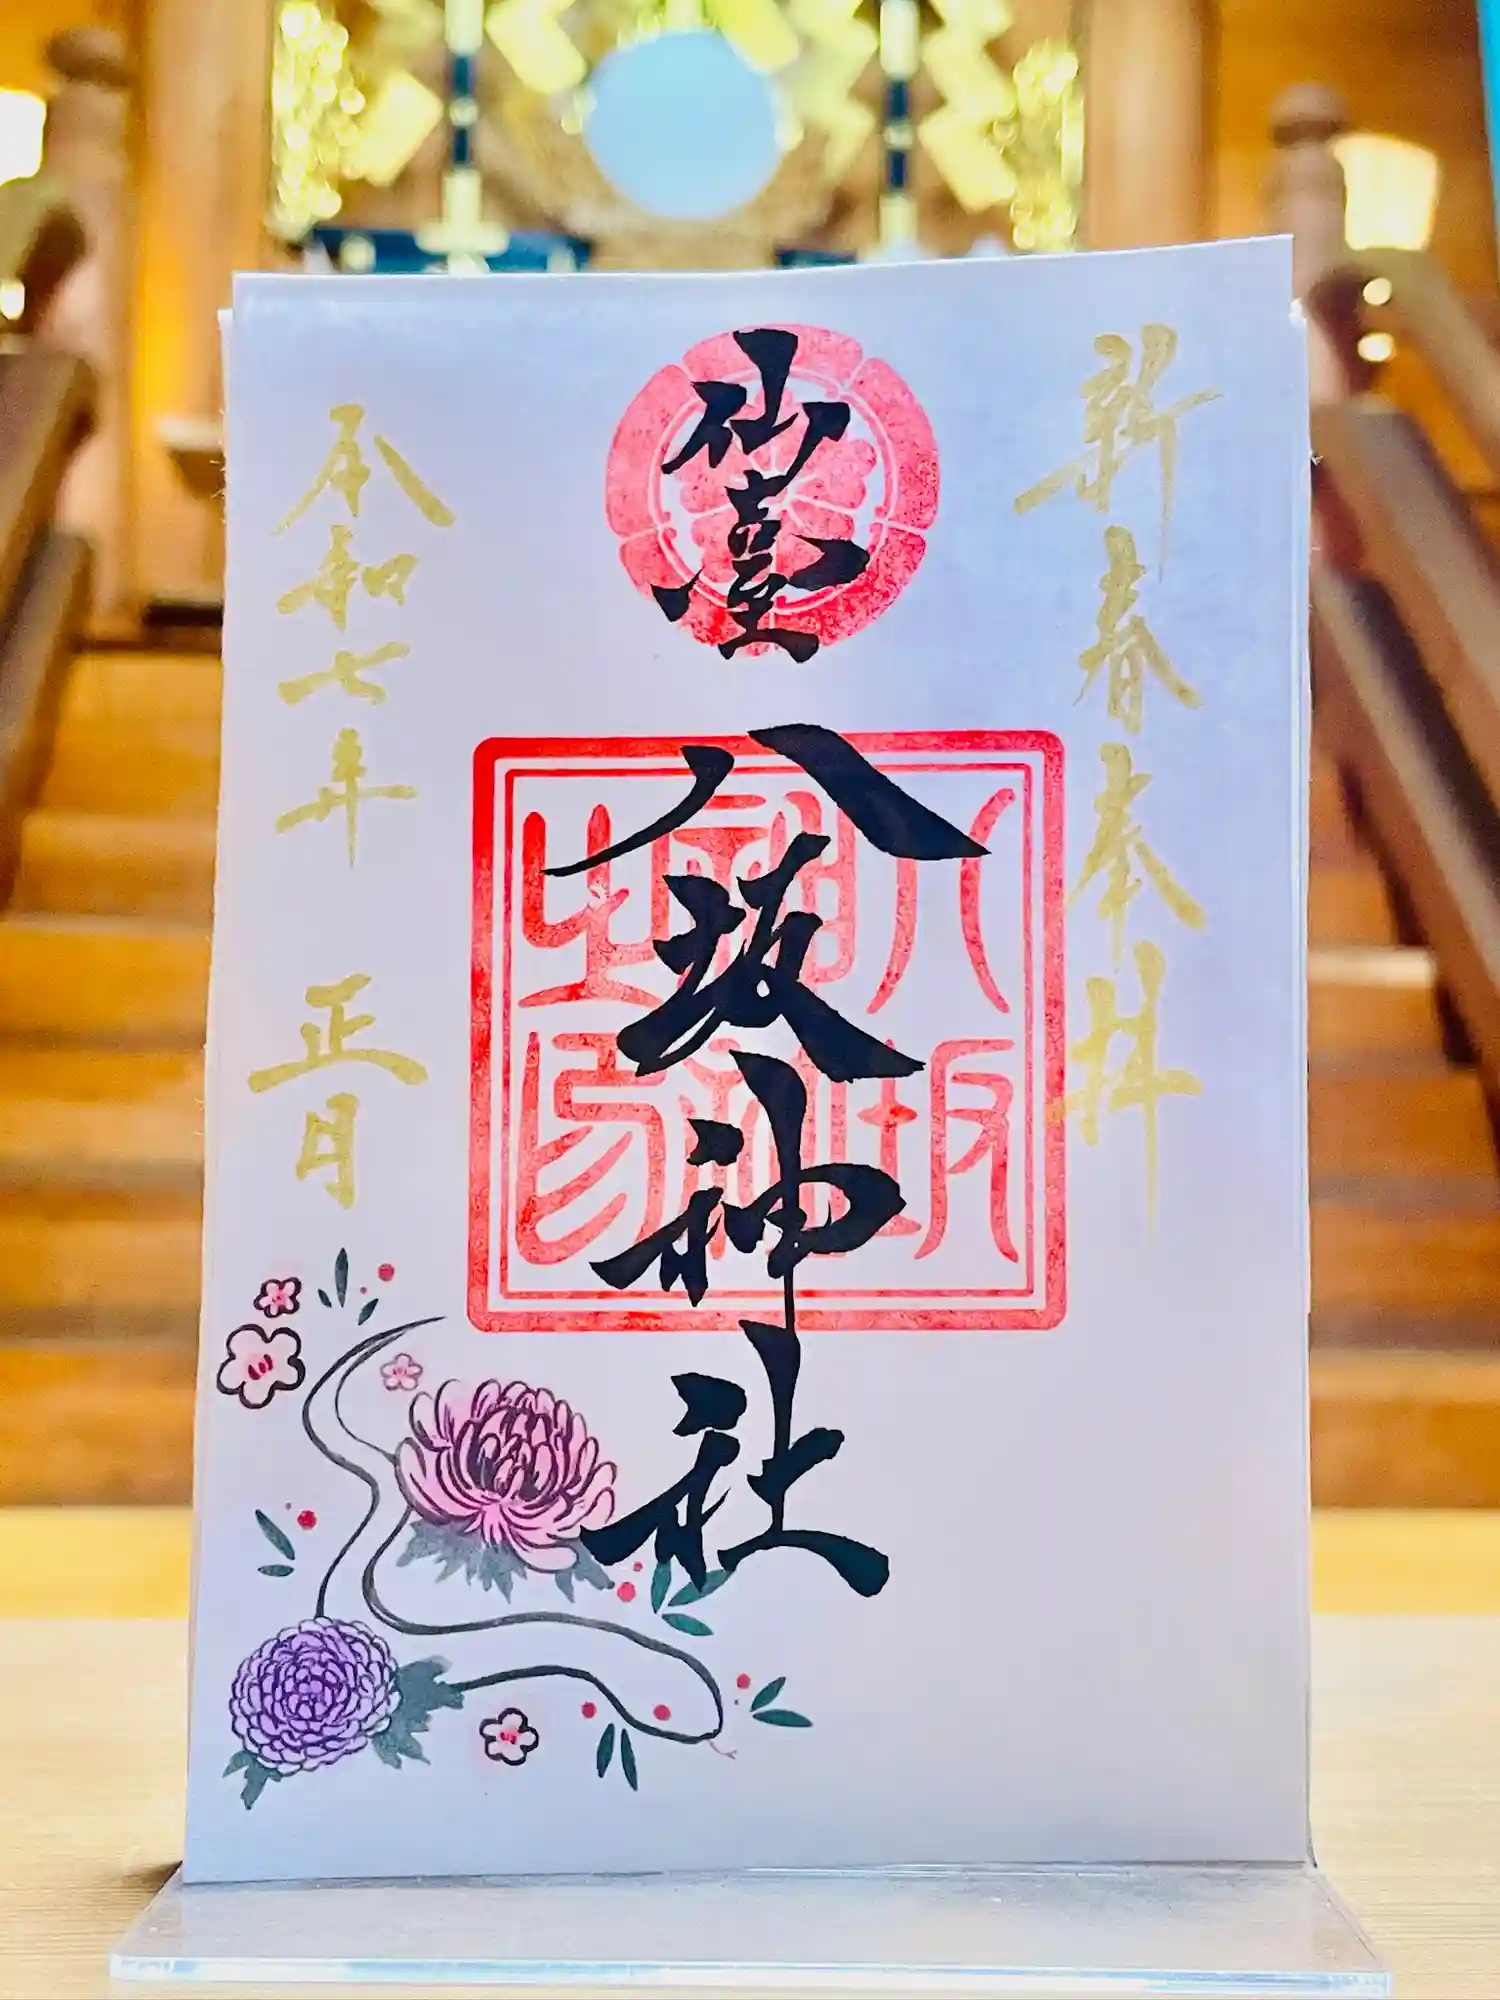 新春奉拝
仙臺
八坂神社
八坂神社之印
令和七年 正日